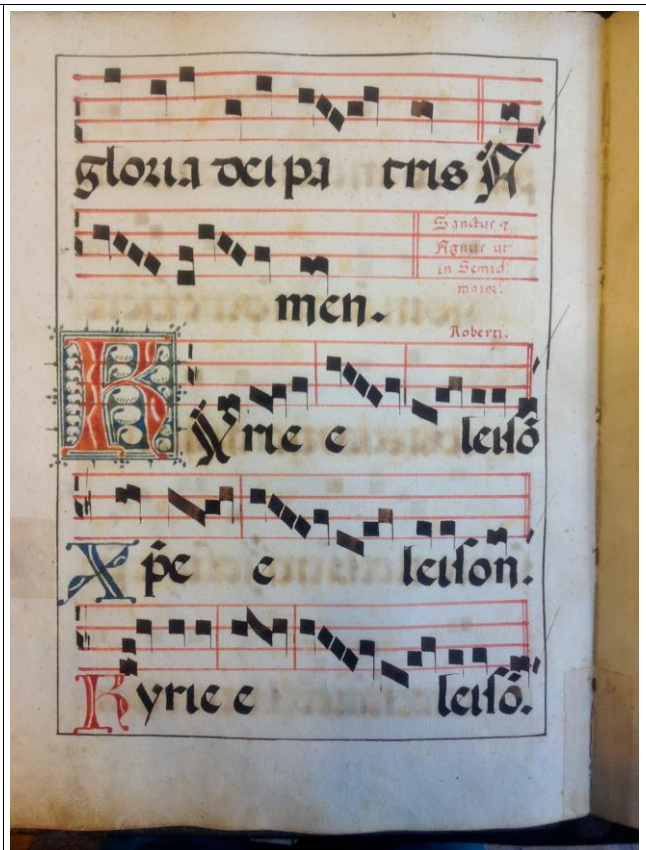 gloria dei pa tris A
Sanctus ⁊
Agnus ut
in Semid.
maior.
men.
Roberti.
Kyrie e leisō
Xp̄e e leison.
Kyrie e leisō.